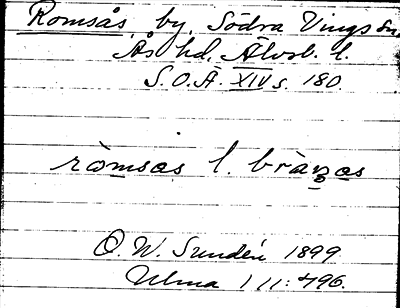 Romsås, by, Södra Vings sn
Ås hd, Älvsb. l.
S.O.Ä. XIV s. 180.
ròmsas l. bràŋas
O. W. Sundén 1899
Ulma 111:496.